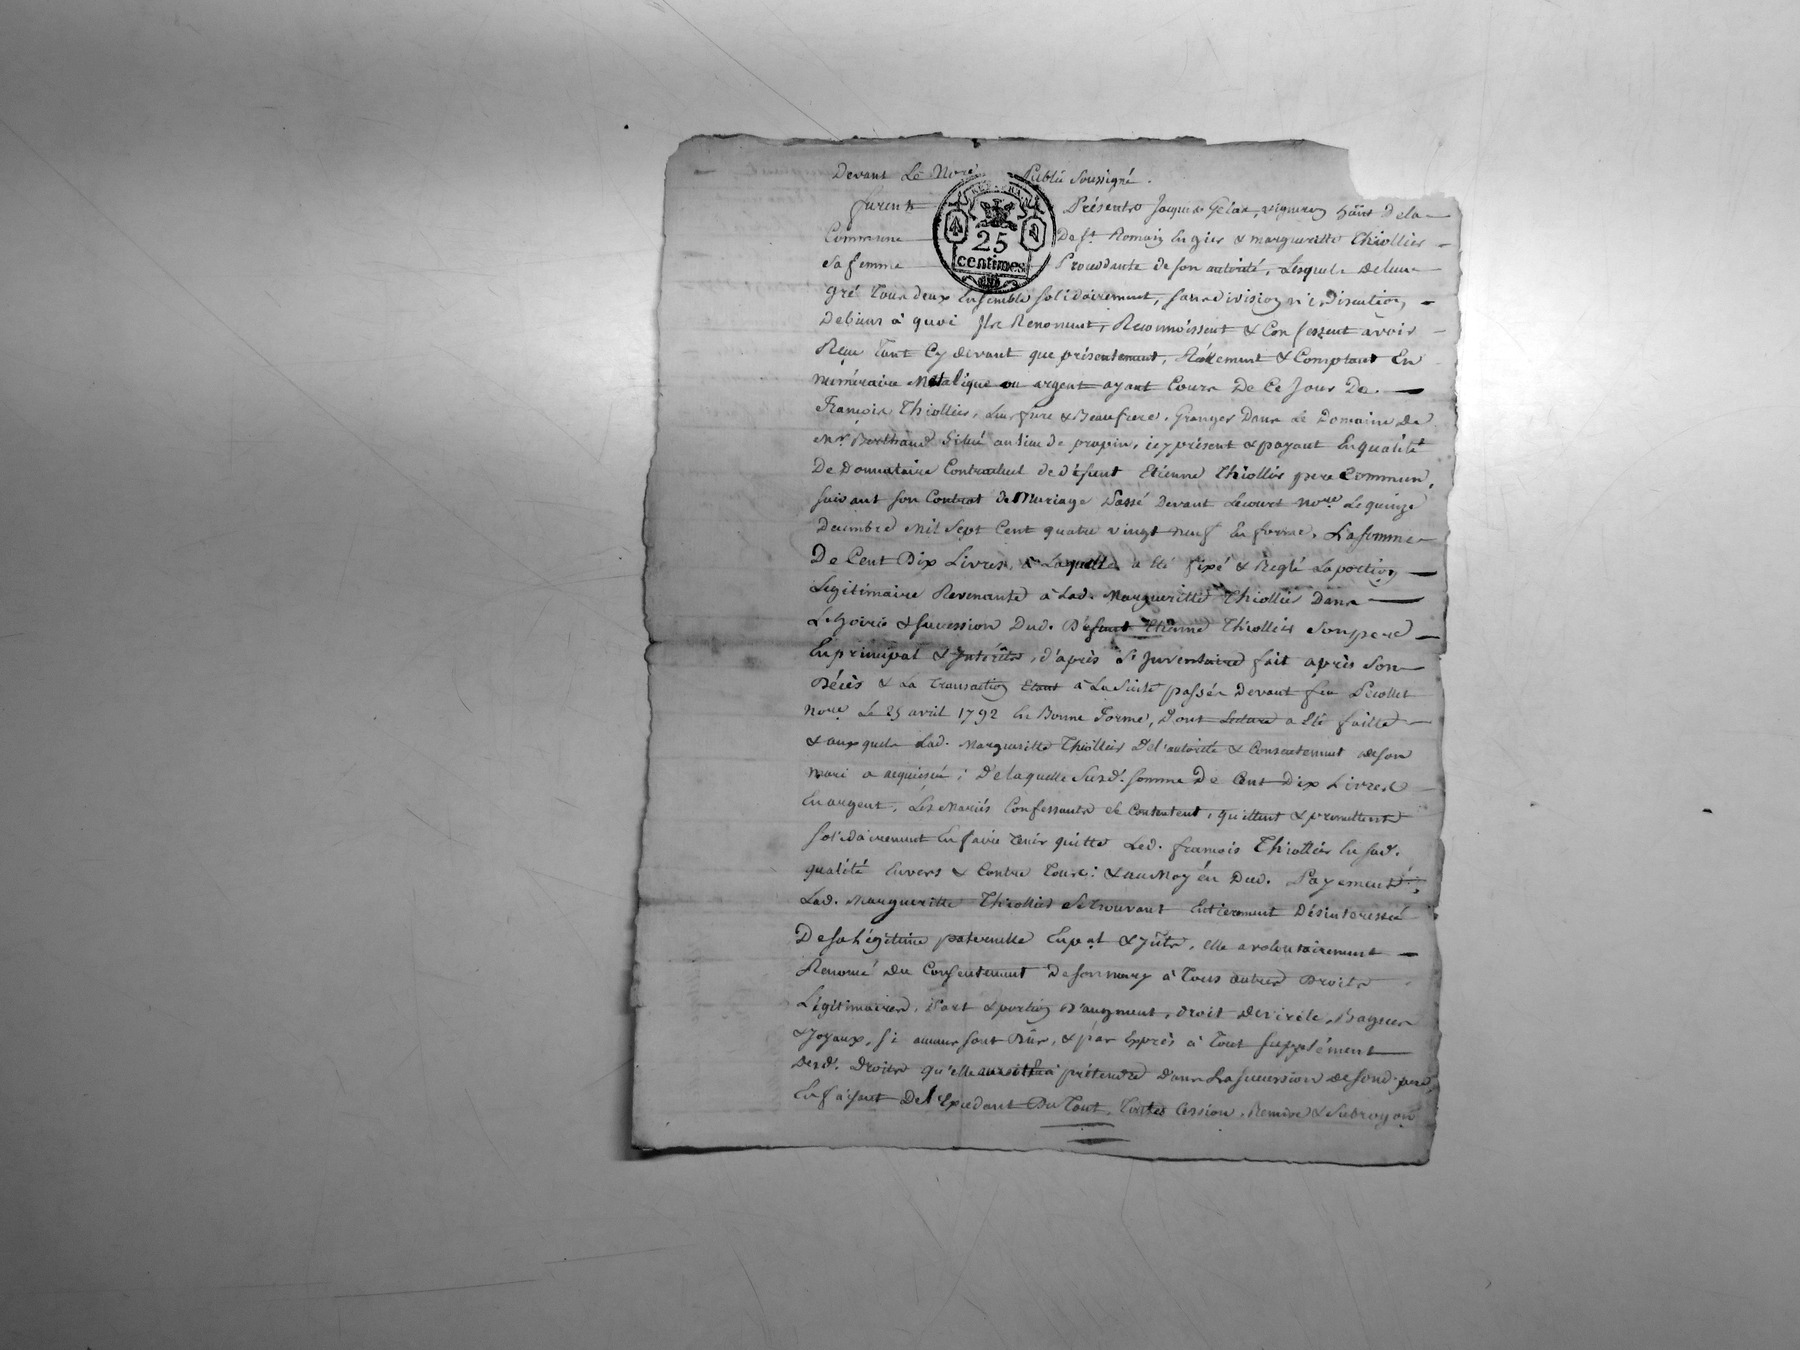 Devant Le Nore Public Soussigné.
REP. FRA.
25
centimes
furent Présents Jacques Gelas, vigneron habt. De la
Commune De St. Romain En gier & margueritte Thiollier
Sa femme Procedante de son autorité, Lesquels De leur
gré Tous deux Ensemble solidairement, sans division ni discution
De biens à quoi Ils Renoncent, Reconnoissent & Confessent avoir
Reçu Tant Cy devant que présentement, Réellement & Comptant En
Numéraire Métalique ou argent ayant Cours De Ce Jour De
François Thiollier, Leur frere & Beaufrere, Granger Dans Le Domaine de
Mr. Berthaud Situé au lieu de propin, icy présent & payant En qualité
De Donnataire Contractuel de défunt Etienne Thiollier pere Commun,
suivant son Contrat de Mariage Passé Devant Lecourt Nore Le quinze
Decembre Mil Sept Cent quatre vingt neuf En forme, La somme
De Cent Dix Livres, à Laquelle a été fixé & Reglé La portion
Legitimaire Revenante à Lad. Marguerittte Thiollier Dans
L'hoirie & succession Dud. Défunt Etienne Thiollier Son pere
En principal & Intérêts, d'après L'Inventaire fait après Son
Décès & La Transaction Etant à La Suite passée Devant feu Pecollet
Nore Le 25 avril 1792 En Bonne Forme, Dont Lecture a Eté faitte
& auxquels Lad. Marguerittte Thiollier De l'autorité & Consentement de son
mari a acquiescé ; De laquelle Susd. somme De Cent Dix Livres
En argent, Les Mariés Confessants se Contentent, quittent & promettent
solidairement En faire Tenir quitte Led. françois Thiollier En sad.
qualité Envers & Contre Tous : & au Moyén Dud. Payement,
Lad. Marguerittte Thiollier Se Trouvant Entierement Désinteressée
De sa Légitime paternelle En pal & Jnts, elle a volontairement
Renoncé Du Consentement De son mary à Tous autres Droits
Légitimaires, Part & portion D'augment, Droit De virile, Bagues
& Joyaux, si aucuns sont Dûs, & par Exprès à Tout supplément
Desd. Droits qu'elle prétendre Dans La succession de sond. pere,
En faisant De l'Excedant Du Tout, Toutes Cession, Remise & Subrogaon